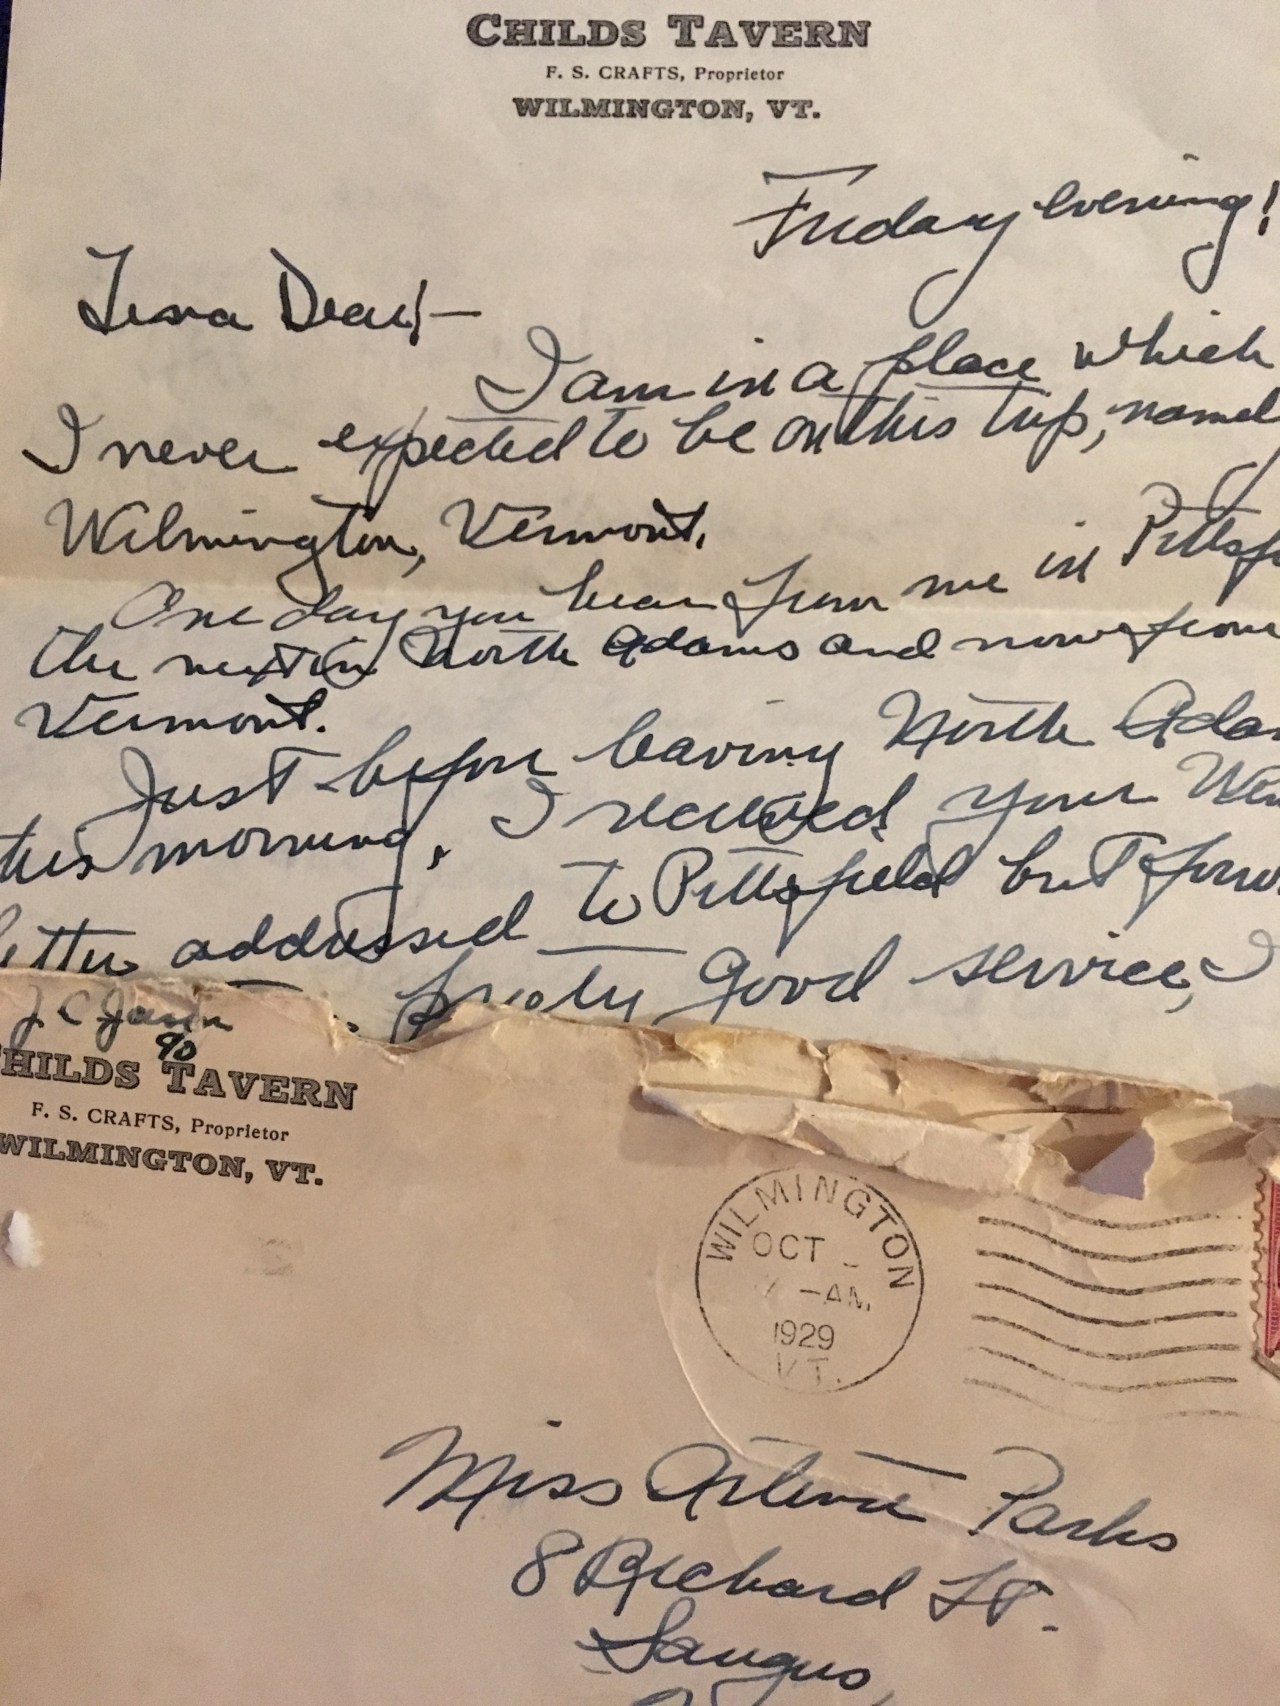 CHILDS TAVERN
F. S. CRAFTS, Proprietor
WILMINGTON, VT.
Friday evening!
Dear!—
I am in a place which
I never expected to be on this trip, namel
Wilmington, Vermont.
One day you hear from me in Pittsf
the next in North Adams and now from
Vermont.
Just before leaving North Ada
this morning, I received your
letter addressed to Pittsfield but forw
pretty good service, I
J C
%
CHILDS TAVERN
F. S. CRAFTS, Proprietor
WILMINGTON, VT.
WILMINGTON
OCT
-AM
1929
VT.
Miss Arlene Parks
8 Richard St.
Saugus,